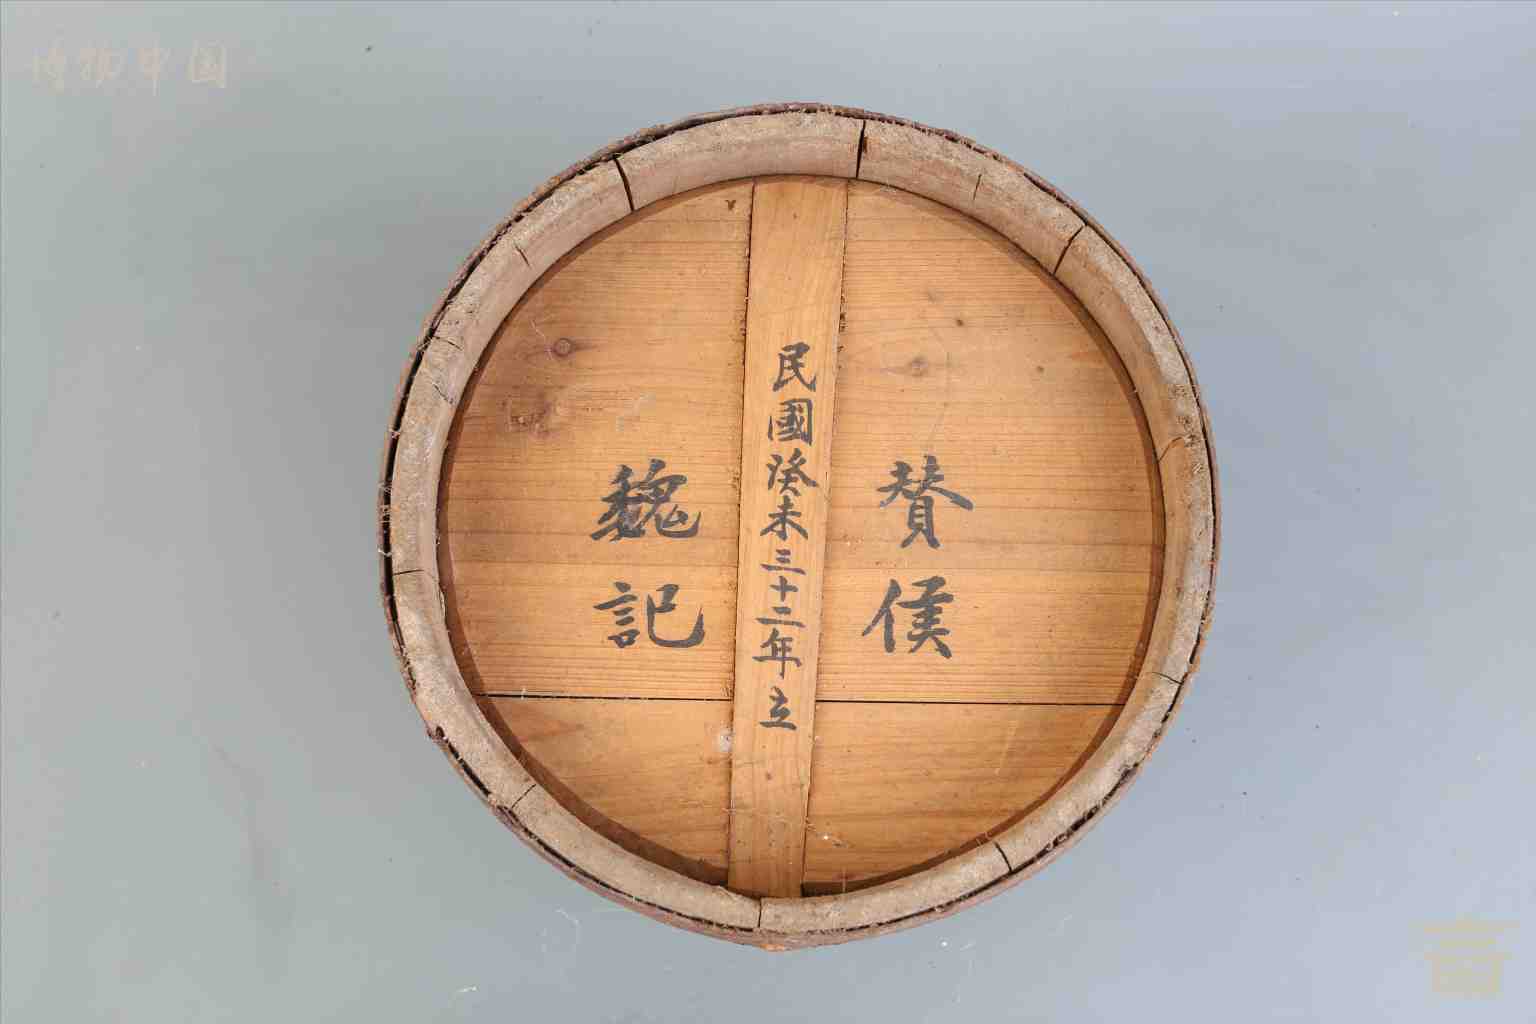 博物中国
賛侯
民國癸未三十二年立
魏記